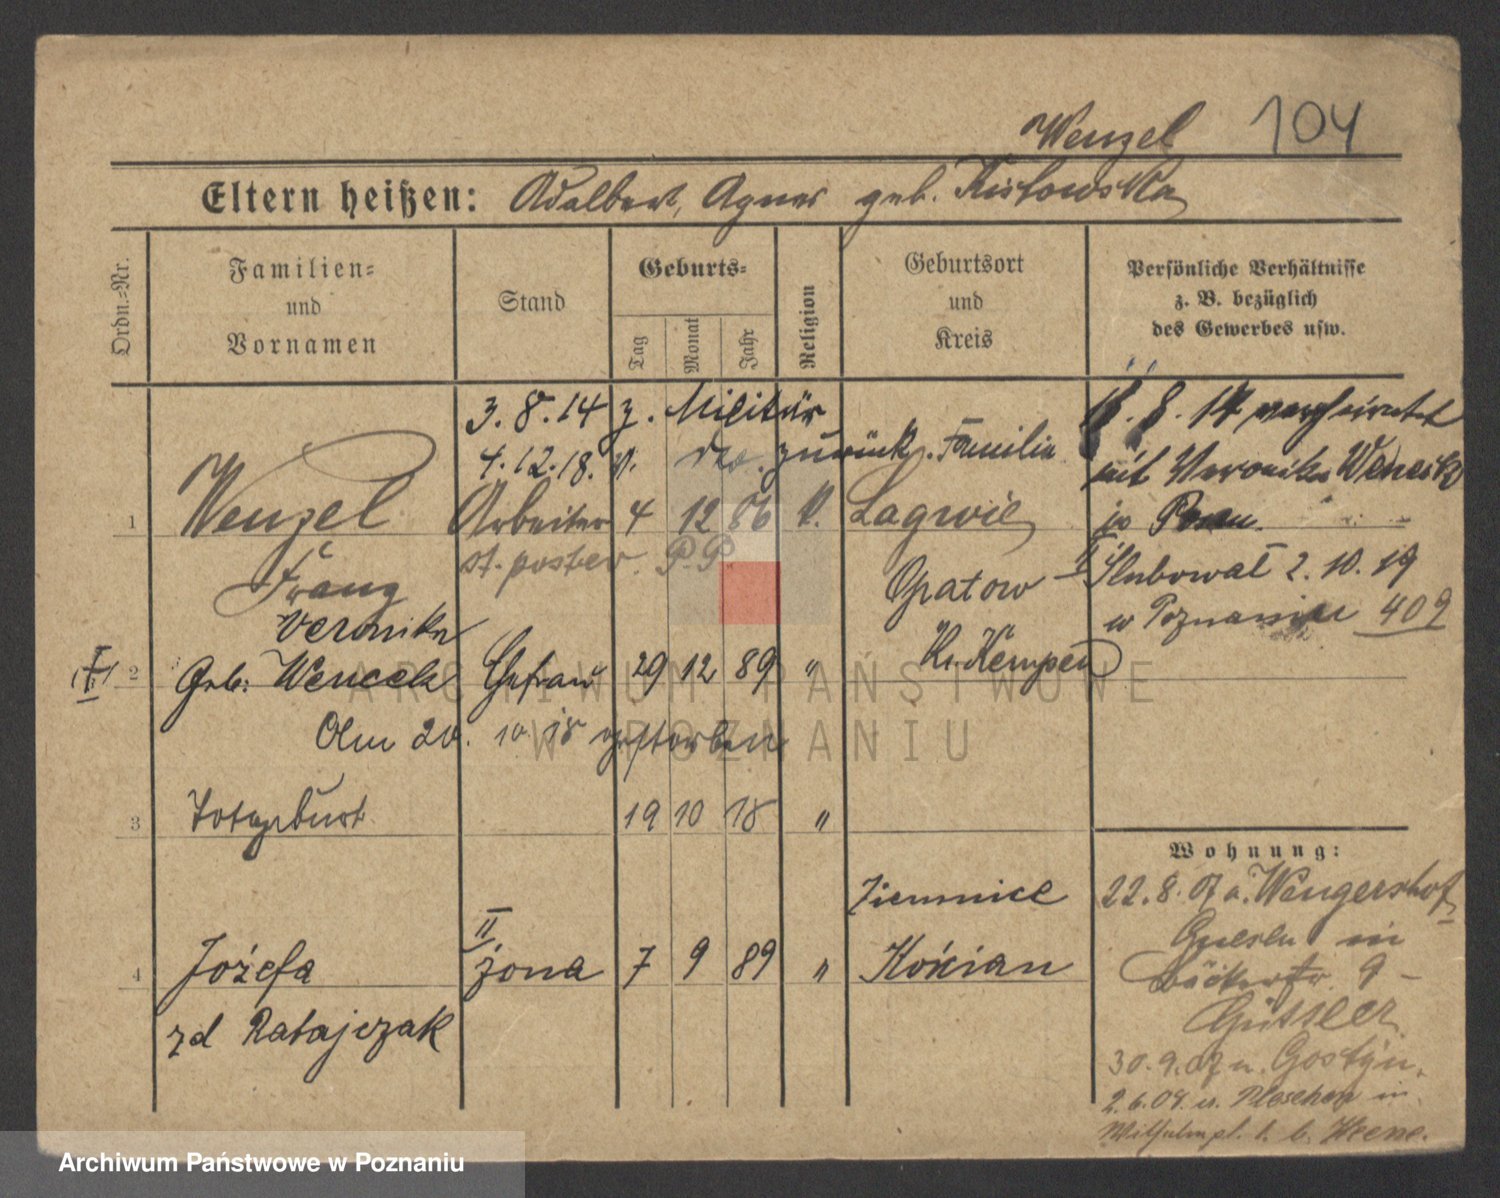 Wenzel 104
Eltern heißen: Adalbert, Agnes geb. Kistowska
Ordn.=Nr.
Familien=
und
Vornamen
Stand
Geburts=
Tag
Monat
Jahr
Religion
Geburtsort
und
Kreis
Persönliche Verhältnisse
z. B. bezüglich
des Gewerbes usw.
3. 8. 14 z. Militär
4. 12. 18. v. zurück. Familie
1 Wenzel Arbeiter 4 12 86 k.
st. poster. P.P.
Franz
Opatow
Kr. Kempen
8. 17 verheiratet
mit Veronika Wencek
in Posen
II Ślubował 2. 10. 19
w Poznaniu 409
Veronika
2 Geb: Wencek Ehefrau 29 12 89 "
Am 20. 10. 18 gestorben
3 Totgeburt 19 10 18 "
Ziemnice
II
4 Józefa żona 7 9 89 " Kościan
zd Ratajczak
Wohnung:
22. 8. 07 a. Wengershof
Gnesen in
Bäckerstr. 9
30. 9. 07 n. Gostyn.
2. 6. 09. n. Pleschen in
Wilhelmpl. 1. b.
ARCHIWUM PAŃSTWOWE
W POZNANIU
Archiwum Państwowe w Poznaniu